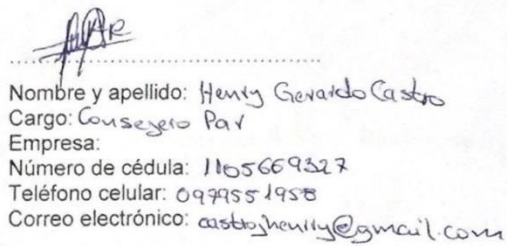 Nombre y apellido: Henry Gerardo Castro
Cargo: Consejero Par
Empresa:
Número de cédula: 1105669327
Teléfono celular: 0979551958
Correo electrónico: castrojhenrry@gmail.com